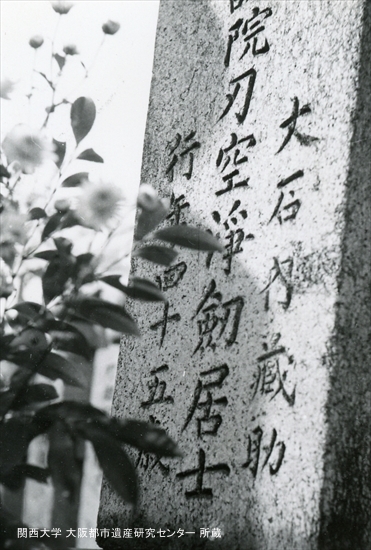 大石内蔵助
院刃空浄劔居士
行年四十五歳
関西大学 大阪都市遺産研究センター 所蔵